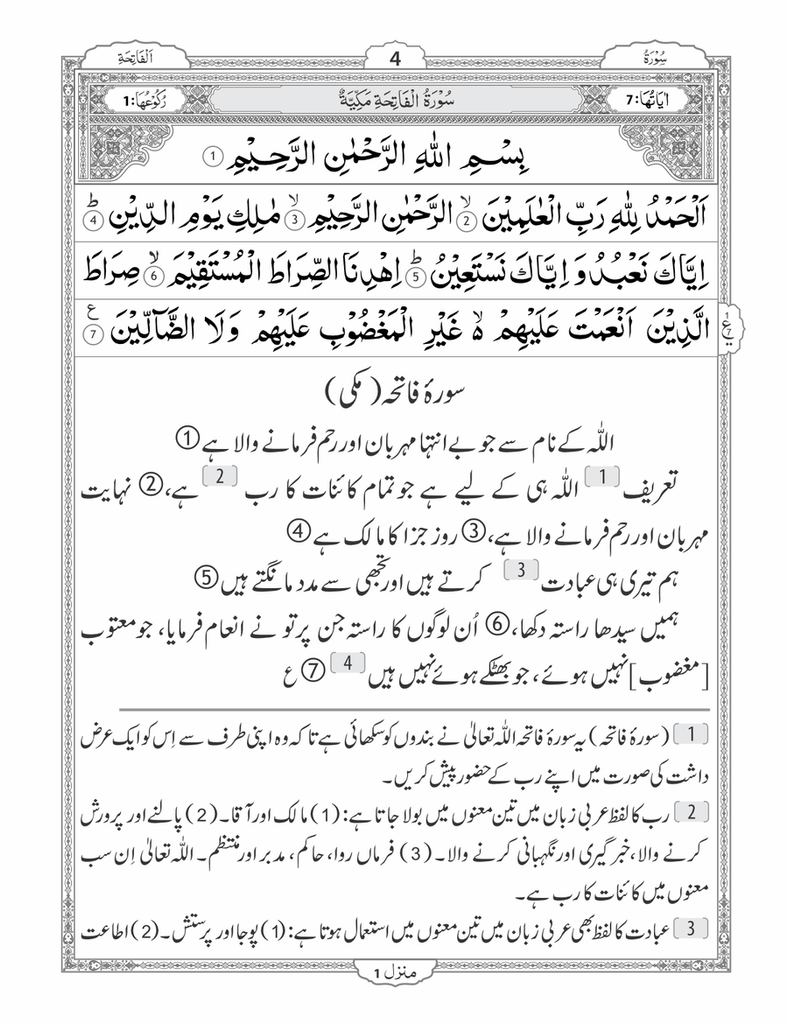 سُوْرَةُ
4
اَلْفَاتِحَةِ
اٰيَاتُهَا:7
سُوْرَةُ الْفَاتِحَةِ مَكِّيَّةٌ
رُكُوْعُهَا:1
بِسْمِ اللّٰهِ الرَّحْمٰنِ الرَّحِيْمِ ①
اَلْحَمْدُ لِلّٰهِ رَبِّ الْعٰلَمِيْنَ ②ۙ الرَّحْمٰنِ الرَّحِيْمِ ③ۙ مٰلِكِ يَوْمِ الدِّيْنِ ④ؕ
اِيَّاكَ نَعْبُدُ وَ اِيَّاكَ نَسْتَعِيْنُ ⑤ؕ اِهْدِنَا الصِّرَاطَ الْمُسْتَقِيْمَ ⑥ۙ صِرَاطَ
الَّذِيْنَ اَنْعَمْتَ عَلَيْهِمْ ۙ۬ غَيْرِ الْمَغْضُوْبِ عَلَيْهِمْ وَلَا الضَّآلِّيْنَ ⑦ع
1 ع 7
سورۂ فاتحہ (مکی)
اللہ کے نام سے جو بے انتہا مہربان اور رحم فرمانے والا ہے①
تعریف[1] اللہ ہی کے لیے ہے جو تمام کائنات کا رب[2] ہے،② نہایت
مہربان اور رحم فرمانے والا ہے،③ روز جزا کا مالک ہے④
ہم تیری ہی عبادت[3] کرتے ہیں اور تجھی سے مدد مانگتے ہیں⑤
ہمیں سیدھا راستہ دکھا،⑥ اُن لوگوں کا راستہ جن پر تو نے انعام فرمایا، جو معتوب
[مغضوب] نہیں ہوئے، جو بھٹکے ہوئے نہیں ہیں[4]⑦ ع
[1] (سورۂ فاتحہ) یہ سورۂ فاتحہ اللہ تعالیٰ نے بندوں کو سکھائی ہے تاکہ وہ اپنی طرف سے اِس کو ایک عرض
داشت کی صورت میں اپنے رب کے حضور پیش کریں۔
[2] رب کا لفظ عربی زبان میں تین معنوں میں بولا جاتا ہے: (1) مالک اور آقا۔ (2) پالنے اور پرورش
کرنے والا، خبر گیری اور نگہبانی کرنے والا۔ (3) فرماں روا، حاکم، مدبر اور منتظم۔ اللہ تعالیٰ اِن سب
معنوں میں کائنات کا رب ہے۔
[3] عبادت کا لفظ بھی عربی زبان میں تین معنوں میں استعمال ہوتا ہے: (1) پوجا اور پرستش۔ (2) اطاعت
منزل 1